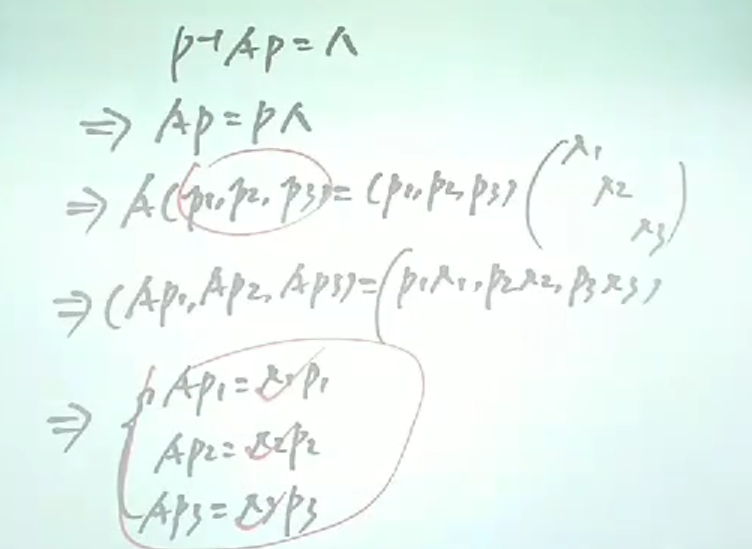 P⁻¹AP = Λ
⇒ AP = PΛ
⇒ A(p₁, p₂, p₃) = (p₁, p₂, p₃) (λ₁ λ₂ λ₃)
⇒ (Ap₁, Ap₂, Ap₃) = (p₁λ₁, p₂λ₂, p₃λ₃)
⇒ { Ap₁ = λ₁p₁
Ap₂ = λ₂p₂
Ap₃ = λ₃p₃